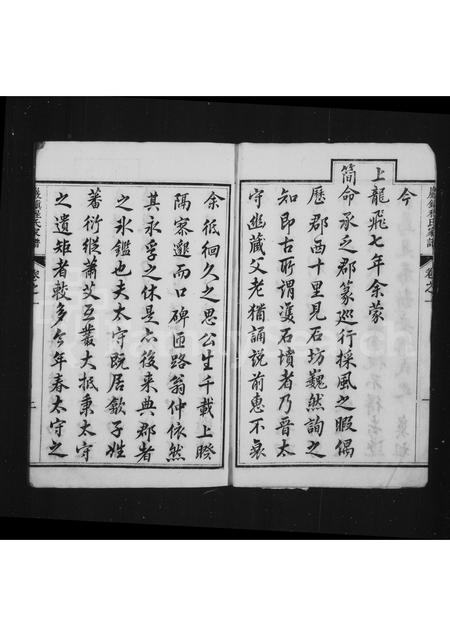 今
上龍飛七年余蒙
簡命承乏郡篆巡行採風之暇偶
歷郡西十里見石坊巍然詢之
知即古所謂雙石墳者乃晉太
守幽藏父老猶誦説前惠不衰
余徘徊久之思公生千載上暌
隔寮遐而口碑匝路翁仲依然
其永孚之休是亦後来典郡者
之氷鑑也夫太守既居歙子姓
蕃衍繼蕭艾互叢大抵秉太守
之遺矩者較多今年春太守之
卷之一